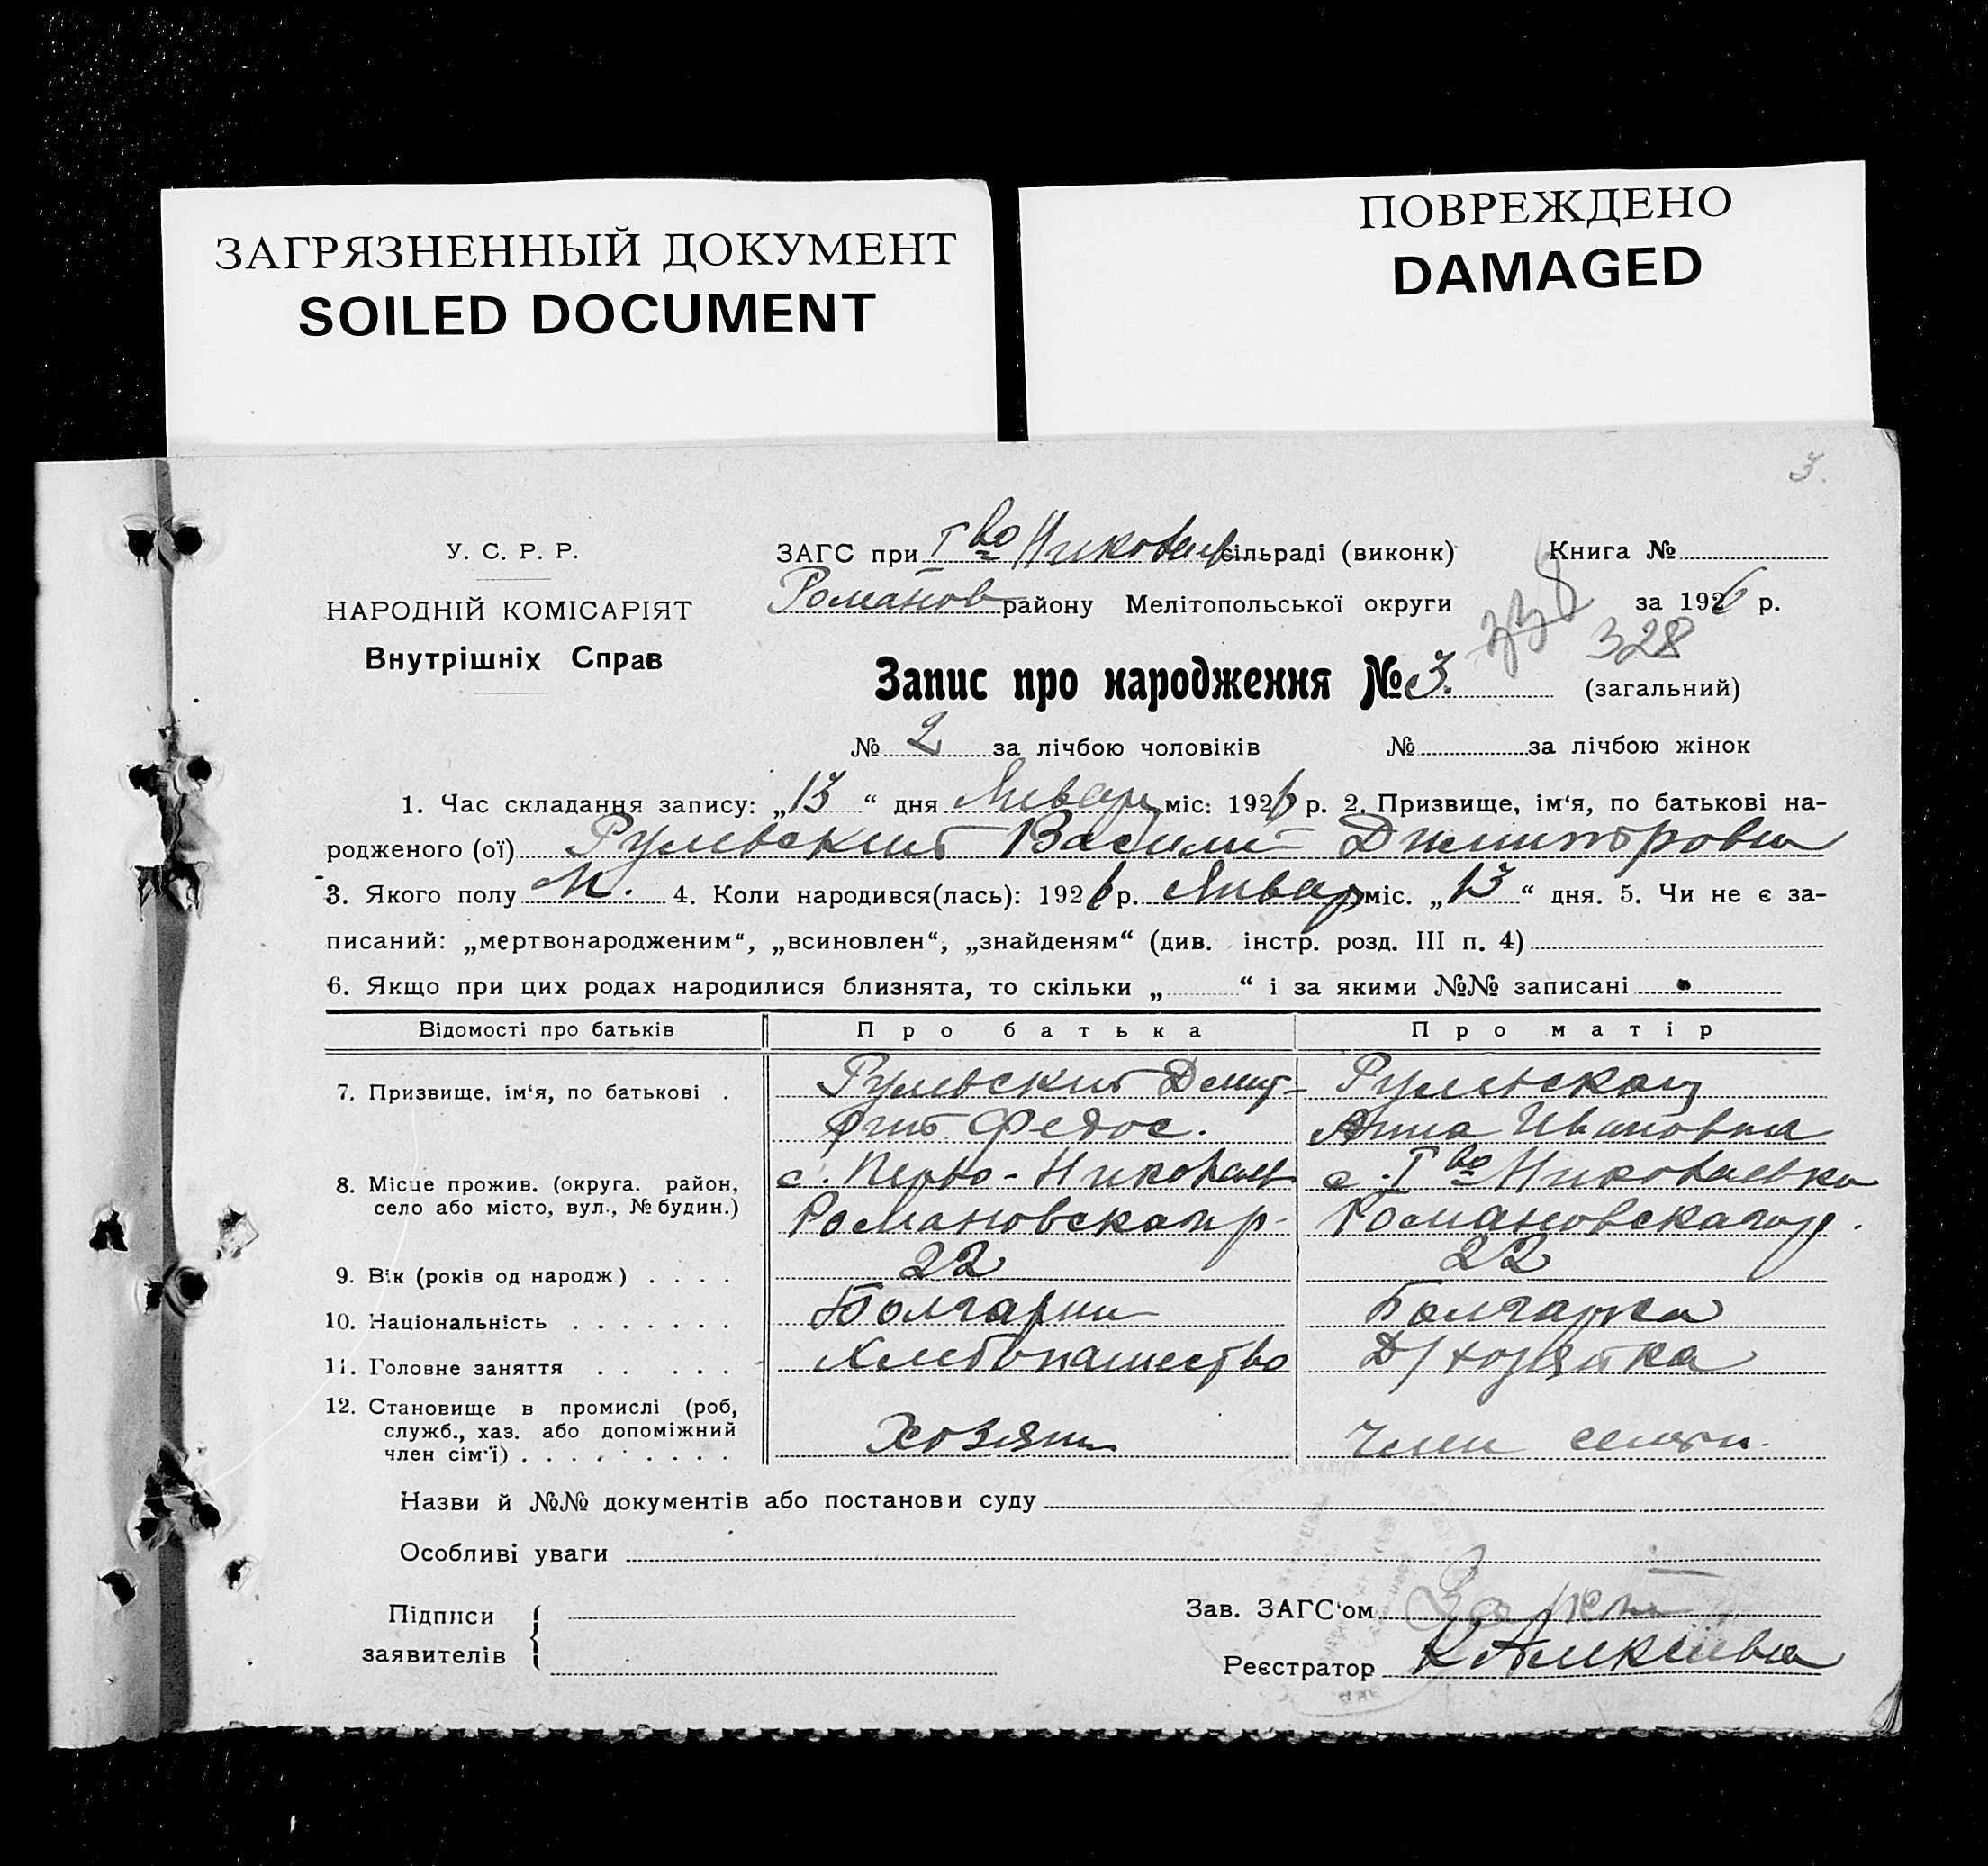 ЗАГРЯЗНЕННЫЙ ДОКУМЕНТ
SOILED DOCUMENT
ПОВРЕЖДЕНО
DAMAGED
3.
У. С. Р. Р.
НАРОДНІЙ КОМІСАРІЯТ
Внутрішніх Справ
ЗАГС при Iво Николаев сільраді (виконк) Книга №
Романов району Мелітопольської округи за 1926 р.
328
Запис про народження № 3. (загальний)
№ 2 за лічбою чоловіків № за лічбою жінок
1. Час складання запису: „13“ дня Январ міс: 1926 р. 2. Призвище, ім‘я, по батькові на-
родженого (ої) Рулевский Василий Димитрович
3. Якого полу М. 4. Коли народився(лась): 1926 р. Январ міс. „13“ дня. 5. Чи не є за-
писаний: „мертвонародженим“, „всиновлен“, „знайденям“ (див. інстр. розд. III п. 4)
6. Якщо при цих родах народилися близнята, то скільки „ “ і за якими №№ записані
Відомості про батьків Про батька Про матір
7. Призвище, ім‘я, по батькові . Рулевский Димит- Рулевская
рий Федос. Анна Ивановна
8. Місце прожив. (округа. район, село або місто, вул., № будин.) с. Перво-Николаев с. Iво Николаевка
Романовскаго р. Романовскаго р.
9. Вік (років од народж.) . . . . 22 22
10. Національність . . . . . . . Болгарин Болгарка
11. Головне заняття . . . . . Хлебопашество Д/хозяйка
12. Становище в промислі (роб, служб., хаз. або допоміжний член сім‘ї) . . . . . . . . Хозяин Член семьи.
Назви й №№ документів або постанови суду
Особливі уваги
Підписи
заявителів
Зав. ЗАГС‘ом
Реєстратор